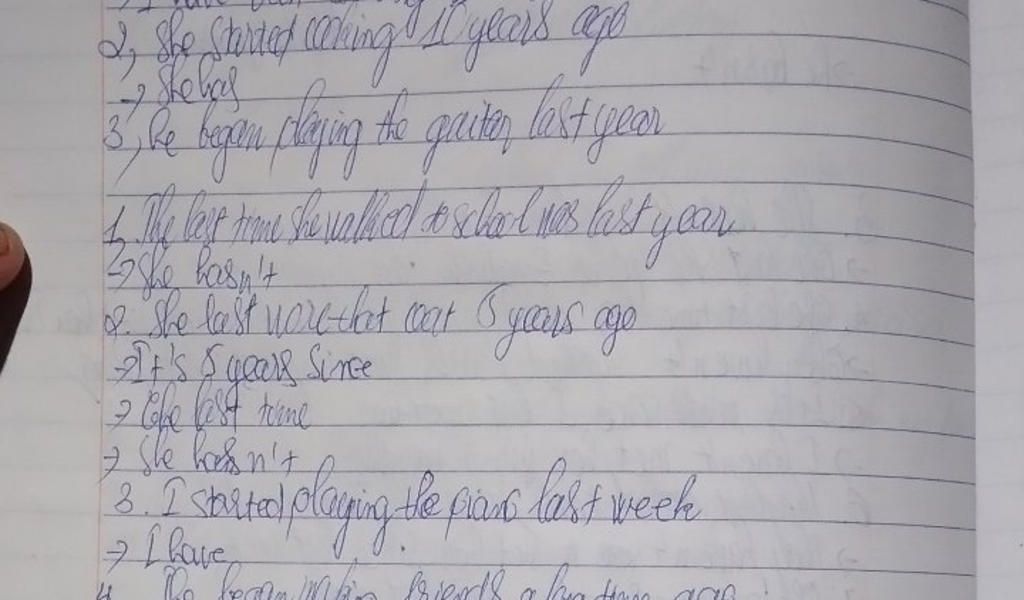 → I have been
2, She started cooking 10 years ago
→ She has
3, He began playing the guiter last year
1, The last time she walked to school was last year
→ She hasn't
2. She last wore that coat 5 years ago
→ It's 5 years since
→ The last time
→ She hasn't
3. I started playing the piano last week
→ I have
4. He began making friends a long time ago